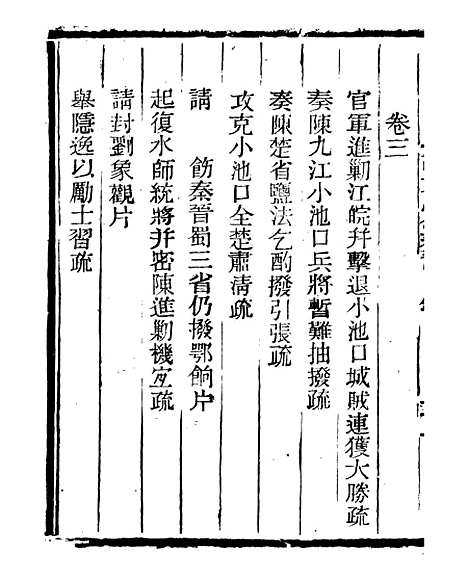 卷三
官軍進剿江皖幷擊退小池口城賊連獲大勝疏
奏陳九江小池口兵將暫難抽撥疏
奏陳楚省鹽法乞酌撥引張疏
攻克小池口全楚肅清疏
請　飭秦晉蜀三省仍撥鄂餉片
起復水師統將幷密陳進剿機宜疏
請封劉象觀片
舉隱逸以勵士習疏